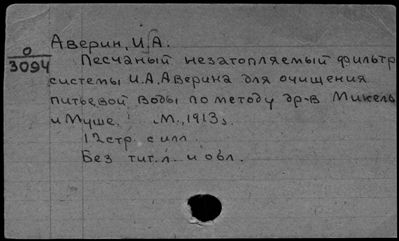 Аверин, И.А.
О
3094
Песчаный незатопляемый фильтр
системы И.А.Аверина для очищения
питьевой воды по методу др-в Микель
и Муше. М., 1913.
12 стр. с илл.
Без тит.л. и обл.